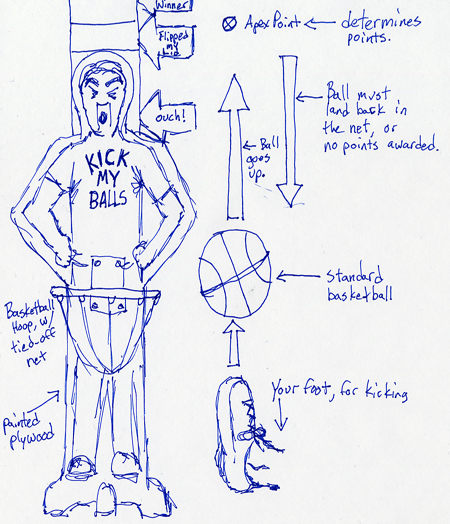 Winner
Flipped
my
Lid
ouch!
KICK
MY
BALLS
Basketball
Hoop, w/
tied-off
net
painted
plywood
Apex Point
determines
points.
Ball must
land back in
the net, or
no points awarded.
Ball
goes
up.
Standard
basketball
Your foot, for kicking